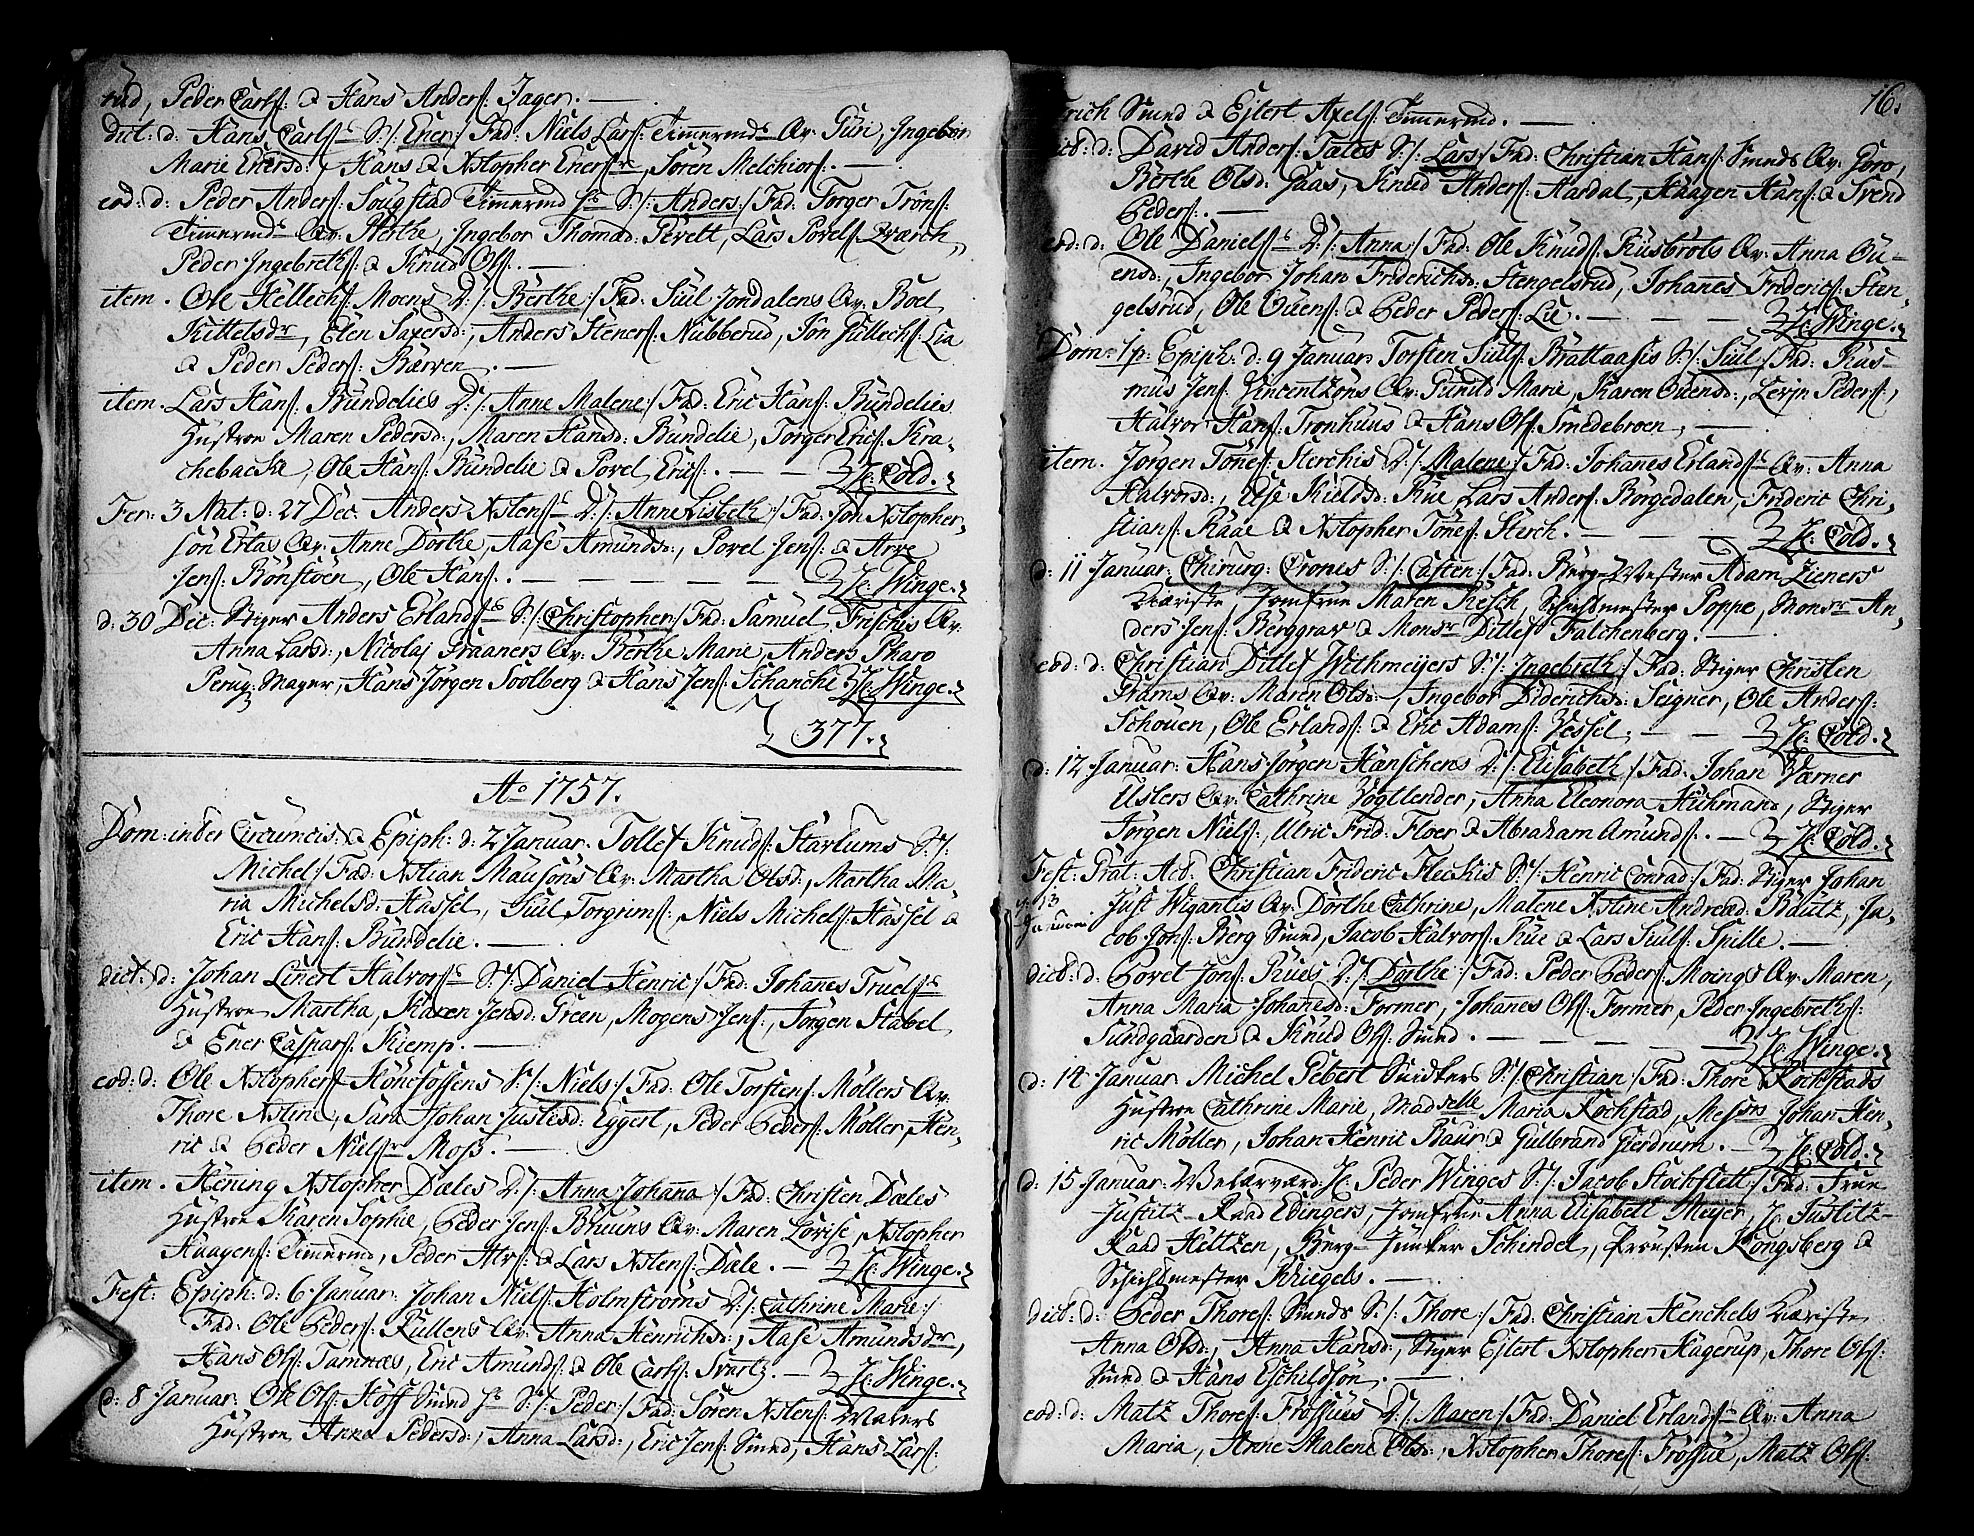 rud, Peder Carls: & Hans Anders: Jager. —
dict: d: Hans Carls: S:/: Ener :/ Fad: Niels Lars: Timmermds Qv: Guri, Ingebor
Marie Enersd:, Hans & Xstopher Eners:, Sören Melchiors: —
eod: d: Peder Anders: Sougstad Timermd S:/: Anders :/ Fad: Torger Trons:
Timermds Qv: Berthe, Ingebor Thomasd: Perett, Lars Povels: Qværch,
Peder Ingebreths: & Knud Ols: —
item. Ole Kellechs: Moens D:/: Berthe :/ Fad: Siul Jondalens Qv: Boel
Kittelsdr, Elen Saxersd:, Anders Steners: Nubberud, Jon Gullechs: Lia
& Peder Peders: Bærven. —
item. Lars Hans: Bundelies D:/: Anne Malene :/ Fad: Eric Hans: Bundelies
Hustroe Maren Pedersd:, Maren Hansd: Bundelie, Torger Erics: Kra-
chebacke, Ole Hans: Bundelie & Povel Erics: — — H: Cold.
Fer: 3 Nat: d: 27 Dec: Anders Xstens: D:/: Anne Lisbeth :/ Fad: Jon Xstopher-
sön Erlas Qv: Anne Dorthe, Aase Amundsd:, Povel Jens: & Arve
Jens: Bönstöen, Ole Hans: — — — — — H: Winge.
d: 30 Dec: Stiger Anders Erlands: S:/: Christopher :/ Fad: Samuel Frischis Qv:
Anna Larsd:, Nicolaj Graaners Qv: Berthe Marie, Anders Pharo
Peruq-Mager, Hans Jörgen Soolberg & Hans Jens: Schanche H: Winge.
377.
Ao 1757.
Dom: inter Circumcis: & Epiph: d: 2 Januar: Tollef Knuds: Starlums S:/:
Michel :/ Fad: Xstian Mausons Qv: Martha Olsd:, Martha Ma-
rie Michelsd: Hassel, Siul Torgrims:, Niels Michels: Hassel &
Eric Hans: Bundelie. —
dict: d: Johan Linert Halvors: S:/: Daniel Henric :/ Fad: Johanes Truels:
Hustroe Martha, Karen Jensd: Green, Mogens Jens:, Jörgen Stabel
& Ener Caspars: Kiemp. —
eod: d: Ole Xstophers: Hönefossens S:/: Niels :/ Fad: Ole Torstens: Möllers Qv:
Thore Xstine, Sara Johan Justesd: Eggert, Peder Peders: Möller, Hen-
ric & Peder Niels: Moss. —
item. Hening Xstopher Dæles D:/: Anna Johanna :/ Fad: Christen Dæles
Hustroe Karen Sophie, Peder Jens: Bruuns Qv: Maren Lovise, Xstopher
Haagens: Timmermd, Peder Alvs: & Lars Xstens: Dæle. — H: Winge.
Fest: Epiph: d: 6 Januar: Johan Niels: Holmstroms D:/: Cathrine Marie :/
Fad: Ole Peders: Rullens Qv: Anna Henrichsd:, Aase Amundsdr,
Hans Ols: Tamnæs, Eric Amunds: & Ole Carls: Svartz. — H: Winge.
d: 8 Januar: Ole Ols: Hoff Smed S:/: Peder :/ Fad: Sören Xstens:
Hustroe Anna Pedersd:, Anna Larsd:, Eric Jens: Smed, Hans Lars:
16.
erich Smed & Ejlert Axels: Timmermd. —
dict: d: David Anders: Tales S:/: Lars :/ Fad: Christian Hans: Smeds Qv: Goro,
Berthe Olsd: Haas, Knud Anders: Aardal, Haagen Hans: & Svend
Peders: —
eod: d: Ole Daniels: D:/: Anna :/ Fad: Ole Knuds: Kusbrots Qv: Anna Ou-
ensd:, Ingebor Johan Friderichsd: Stengelsrud, Johanes Frideric: Sten-
gelsrud, Ole Ouens: & Peder Peders: Lie. — — — H: Winge.
Dom: 1 p: Epiph: d: 9 Januar: Torsten Siuls: Brattaasis S:/: Siul :/ Fad: Ras-
mus Jens: Vincentzons Qv: Gunild Marie, Karen Ouensd:, Levjn Peders:,
Halvor Hans: Tronhuus & Hans Ols: Smedebroen, —
item. Jörgen Tönes: Sterchis D:/: Malene :/ Fad: Johanes Erlands: Qv: Anna
Halvorsd:, Else Kieldsd: Rue, Lars Anders: Borgedalen, Frideric Chri-
stians: Raae & Xstopher Tönes: Sterch. — — — H: Cold.
d: 11 Januar: Chirurg: Crones S:/: Casten :/ Fad: Berg-Mester Adam Zieners
Kiæriste, Jomfrue Maren Resch, Schichtmester Poppe, Monsr An-
ders Jens: Berggrav & Monsr Ditlef Falchenberg. —
eod: d: Christian Ditlef Withmeijers S:/: Ingebreth :/ Fad: Stiger Christen
Grams Qv: Maren Olsd:, Ingebor Diderichsd: Seigner, Ole Anders:
Schouen, Ole Erlands: & Eric Adams: Vessel. — — H: Cold.
d: 12 Januar: Hans Jörgen Hanschens D:/: Elisabeth :/ Fad: Johan Værner
Uslers Qv: Cathrine Vogtlender, Anna Eleonora Huhmand, Stiger
Jörgen Niels:, Ulric Frid: Floer & Abraham Amunds: — H: Cold.
Fest: Præl: Acd: Christian Frideric Fleckis S:/: Henric Conrad :/ Fad: Stiger Johan
d: 13 Januari Just Wigantis Qv: Dorthe Cathrine, Malene Xstine Andread: Bautz, Ja-
cob Jons: Berg Smed, Jacob Halvors: Rue & Lars Siuls: Spille. —
dict: d: Povel Jons: Rues D:/: Dorthe :/ Fad: Peder Peders: Moings Qv: Maren,
Anna Maria Johanesd: Former, Johanes Ols: Former, Peder Ingebreths:
Sundgaarden & Knud Ols: Smed. — — — — H: Winge.
d: 14 Januar: Michel Gebert Snidkers S:/: Christian :/ Fad: Thore Rochstads
Hustroe Cathrine Marie, Madselle Maria Rochstad, Messrs Johan Hen-
ric Möller, Johan Henric Baur & Gulbrand Gierdrum. — H: Cold.
d: 15 Januar: Velærværd: H: Peder Winges S:/: Jacob Stockflett :/ Fad: Frue
Justitz-Raad Edingers, Jomfrue Anna Elisabett Meijer, H: Justitz-
Raad Hiltzen, Berg-Junker Schindel, Provsten Kongsberg &
Schichtmester Kriegels. —
dict: d: Peder Thores: Smeds S:/: Thore :/ Fad: Christian Henchels Kiæriste
Anna Olsd:, Anna Hansd:, Stiger Ejlert Xstophers Hagerup, Thore Ols:
Smed & Hans Eschildsön. —
eod: d: Matz Thores: Frossues D:/: Maren :/ Fad: Daniel Erlands: Qv: Anna
Maria, Anne Malene Olsd:, Xstopher Thores: Frossue, Matz Ols: